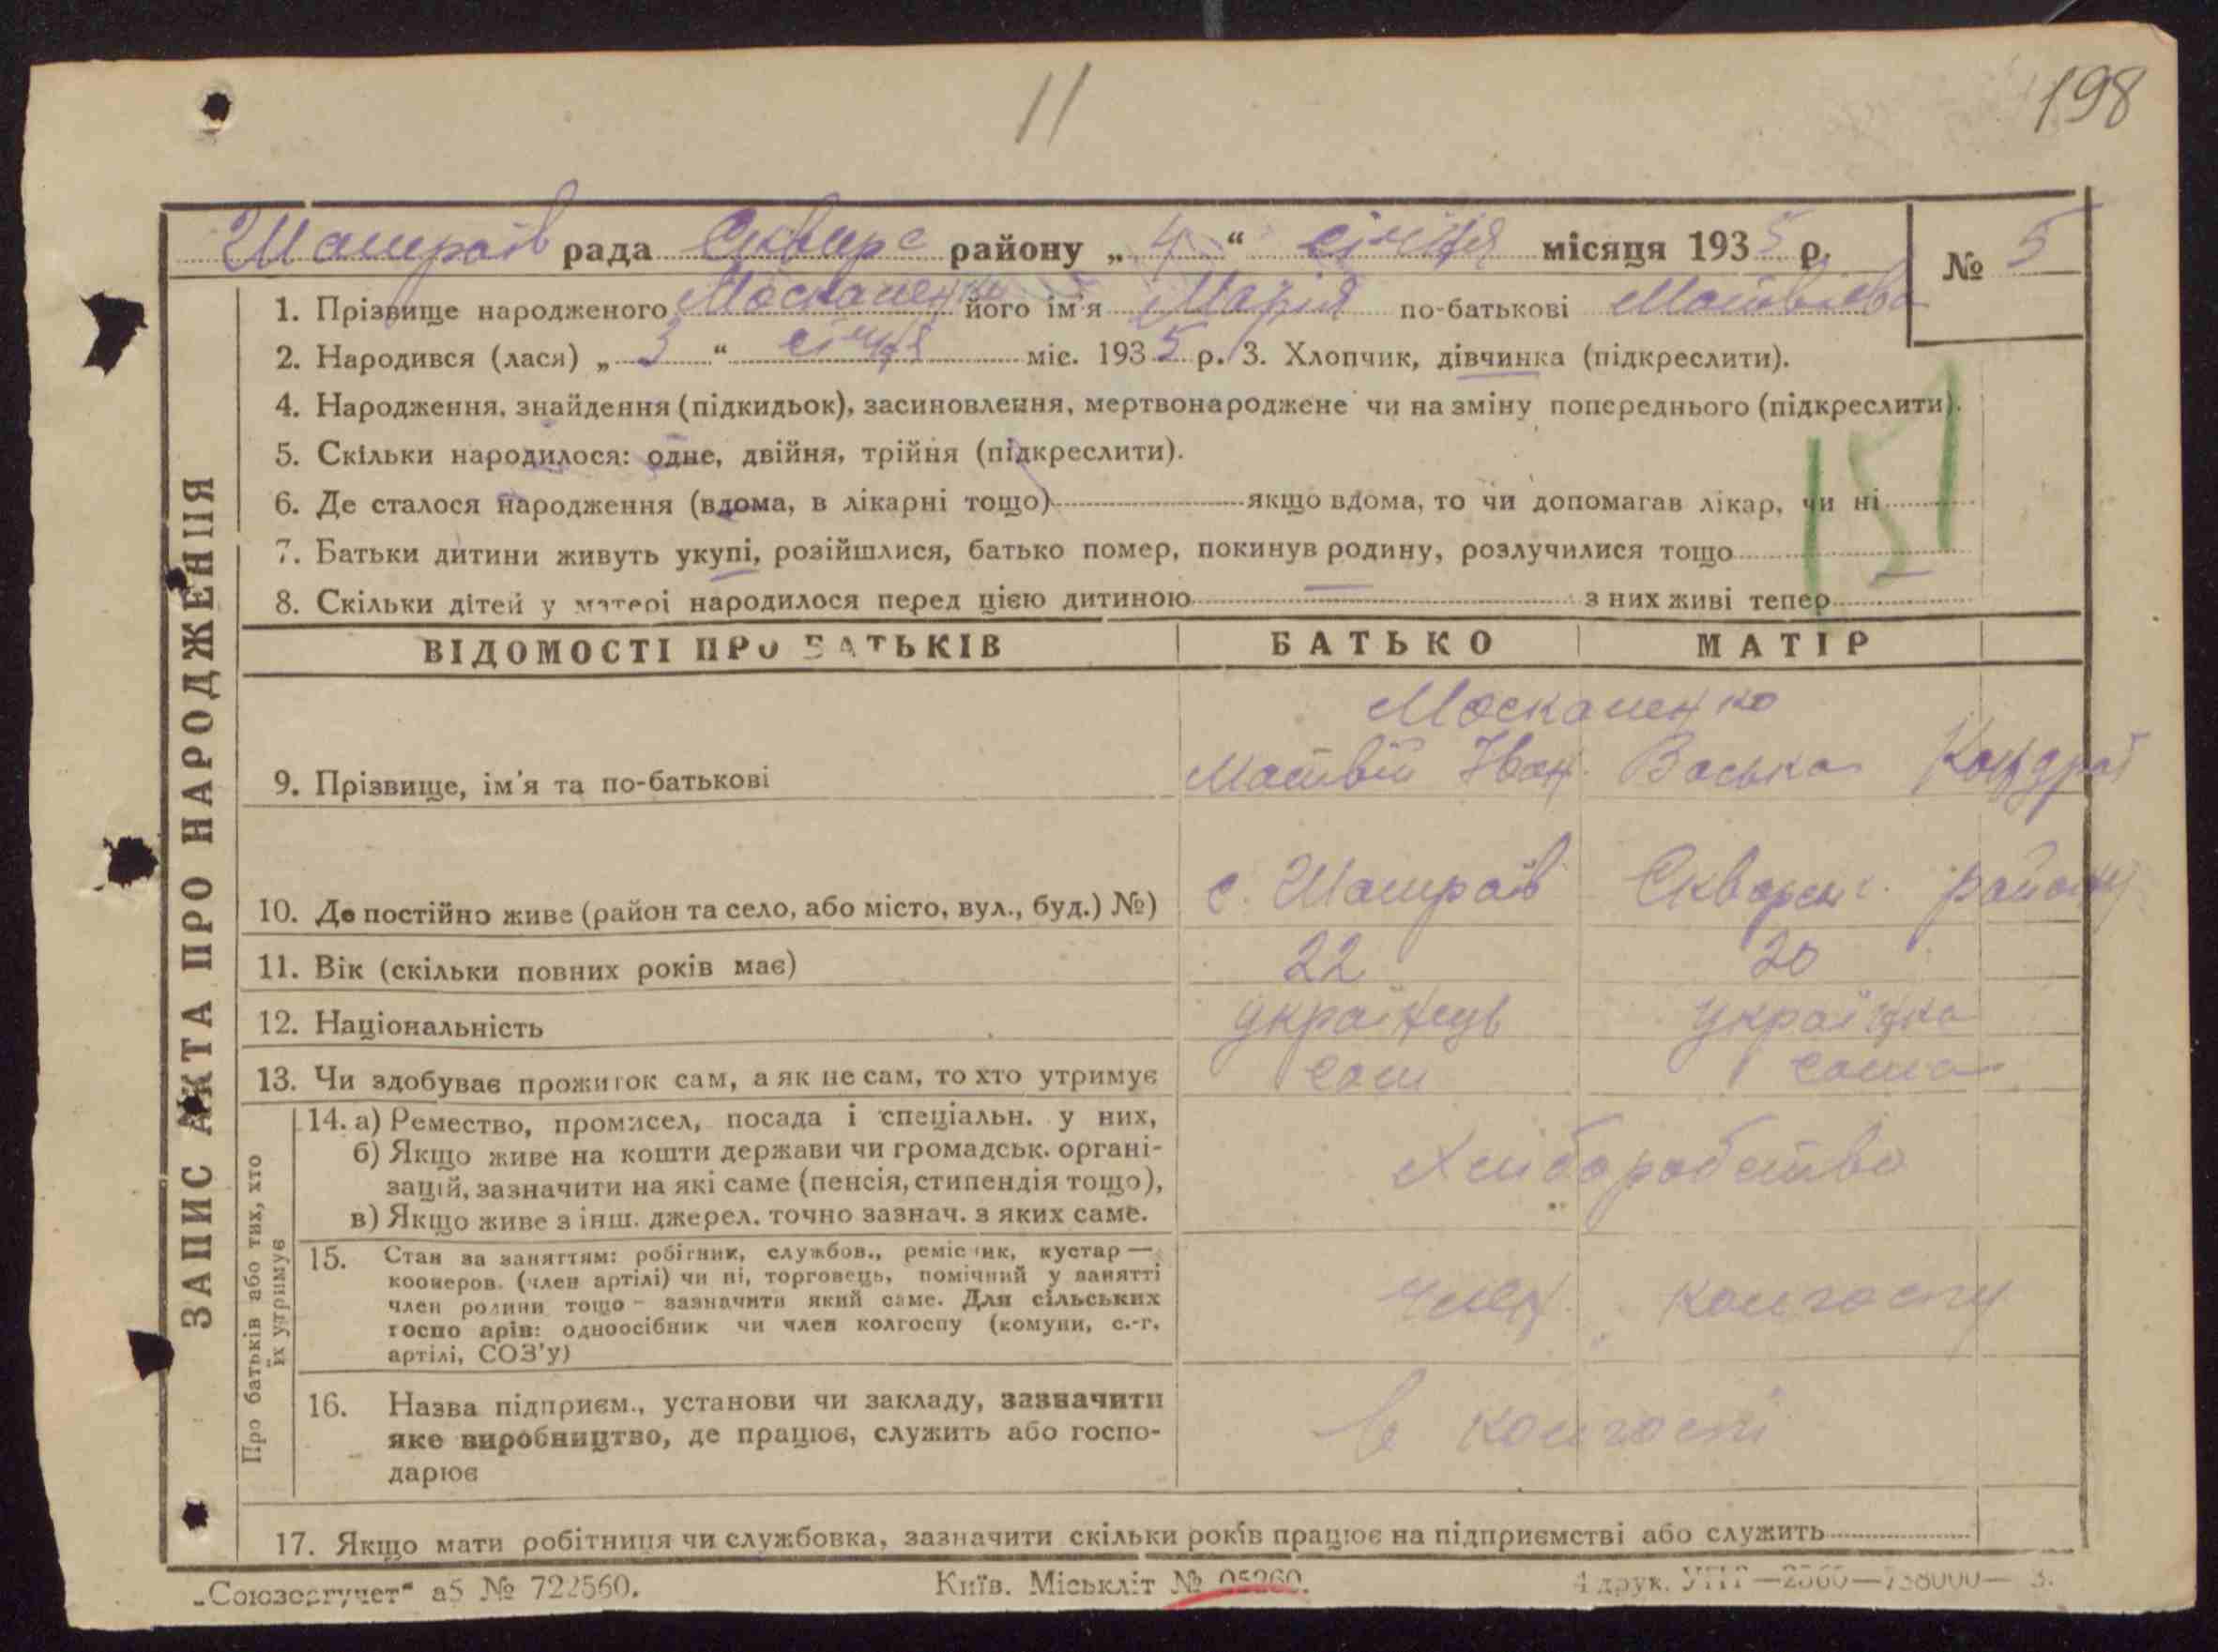 11
198
Шамраїв рада Сквирс району „ 4 “ січня місяця 1935 р. № 5
1. Прізвище народженого Москаленко його ім'я Марія по-батькові Матвієва
2. Народився (лася) „ 3 “ січня міс. 1935 р. 3. Хлопчик, дівчинка (підкреслити).
4. Народження, знайдення (підкидьок), засиновлення, мертвонароджене чи на зміну попереднього (підкреслити).
5. Скільки народилося: одне, двійня, трійня (підкреслити).
6. Де сталося народження (вдома, в лікарні тощо) якщо вдома, то чи допомагав лікар, чи ні
7. Батьки дитини живуть укупі, розійшлися, батько помер, покинув родину, розлучилися тощо
8. Скільки дітей у матері народилося перед цією дитиною — з них живі тепер —
ЗАПИС АКТА ПРО НАРОДЖЕННЯ
ВІДОМОСТІ ПРО БАТЬКІВ БАТЬКО МАТІР
Москаленко
9. Прізвище, ім'я та по-батькові Матвій Іван. Васька Кондрат
10. Де постійно живе (район та село, або місто, вул., буд.) №) с. Шамраїв Сквирськ. району
11. Вік (скільки повних років має) 22 20
12. Національність українець українка
13. Чи здобуває прожиток сам, а як не сам, то хто утримує сам сама
Про батьків або тих, хто
їх утримує
14. а) Ремество, промисел, посада і спеціальн. у них,
б) Якщо живе на кошти держави чи громадськ. органі-
зацій, зазначити на які саме (пенсія, стипендія тощо),
в) Якщо живе з інш. джерел. точно зазнач. з яких саме.
Хліборобство
15. Стан за заняттям: робітник, службов., реміспик, кустар —
кооперов. (член артілі) чи ні, торговець, помічний у занятті
член родини тощо – зазначити який саме. Для сільських
господарів: одноосібник чи член колгоспу (комуни, с.-г.
артілі, СОЗ'у)
член колгоспу
16. Назва підприєм., установи чи закладу, зазначити
яке виробництво, де працює, служить або госпо-
дарює
в колгоспі
17. Якщо мати робітниця чи службовка, зазначити скільки років працює на підприємстві або служить
„Союзоргучет“ а5 № 722560. Київ. Міськліт № 05260. 4 друк.